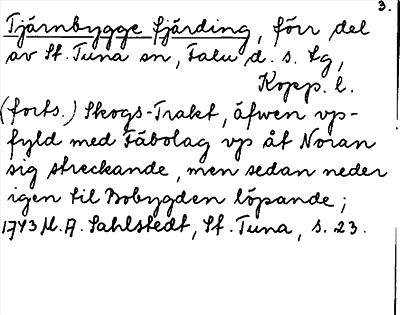 3.
Tjärnbygge fjärding, förr del
av St. Tuna sn, Falu d. s. lg,
Kopp. l.
(forts.) Skogs-Trakt, äfwen vp-
fyld med Fäbolag vp åt Noran
sig streckande, men sedan neder
igen til Bobygden löpande;
1743 M. A. Sahlstedt, St. Tuna, s. 23.